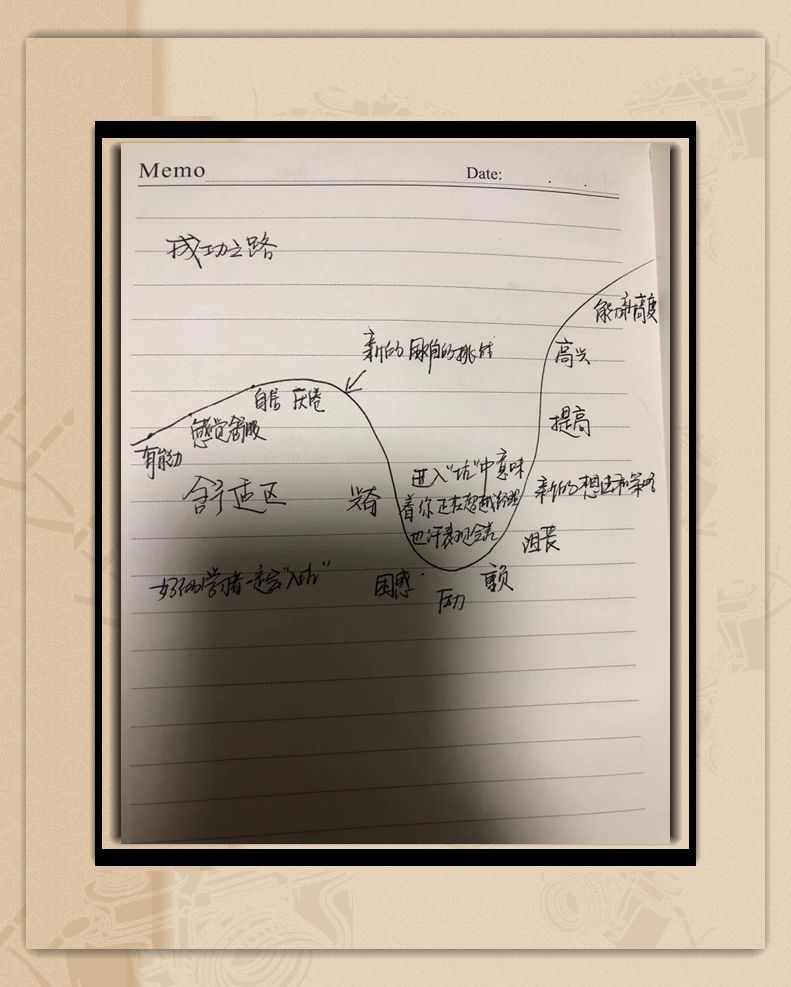 Memo
Date:
成功之路
能力新高度
新的困难的挑战
高兴
自信 厌倦
提高
感觉舒服
有能力
进入"坑"中意味
舒适区
兴奋
着你正在超越
新的想法和策略
也许表现会差
沮丧
好的学习者一定会"入坑"
困惑
压力